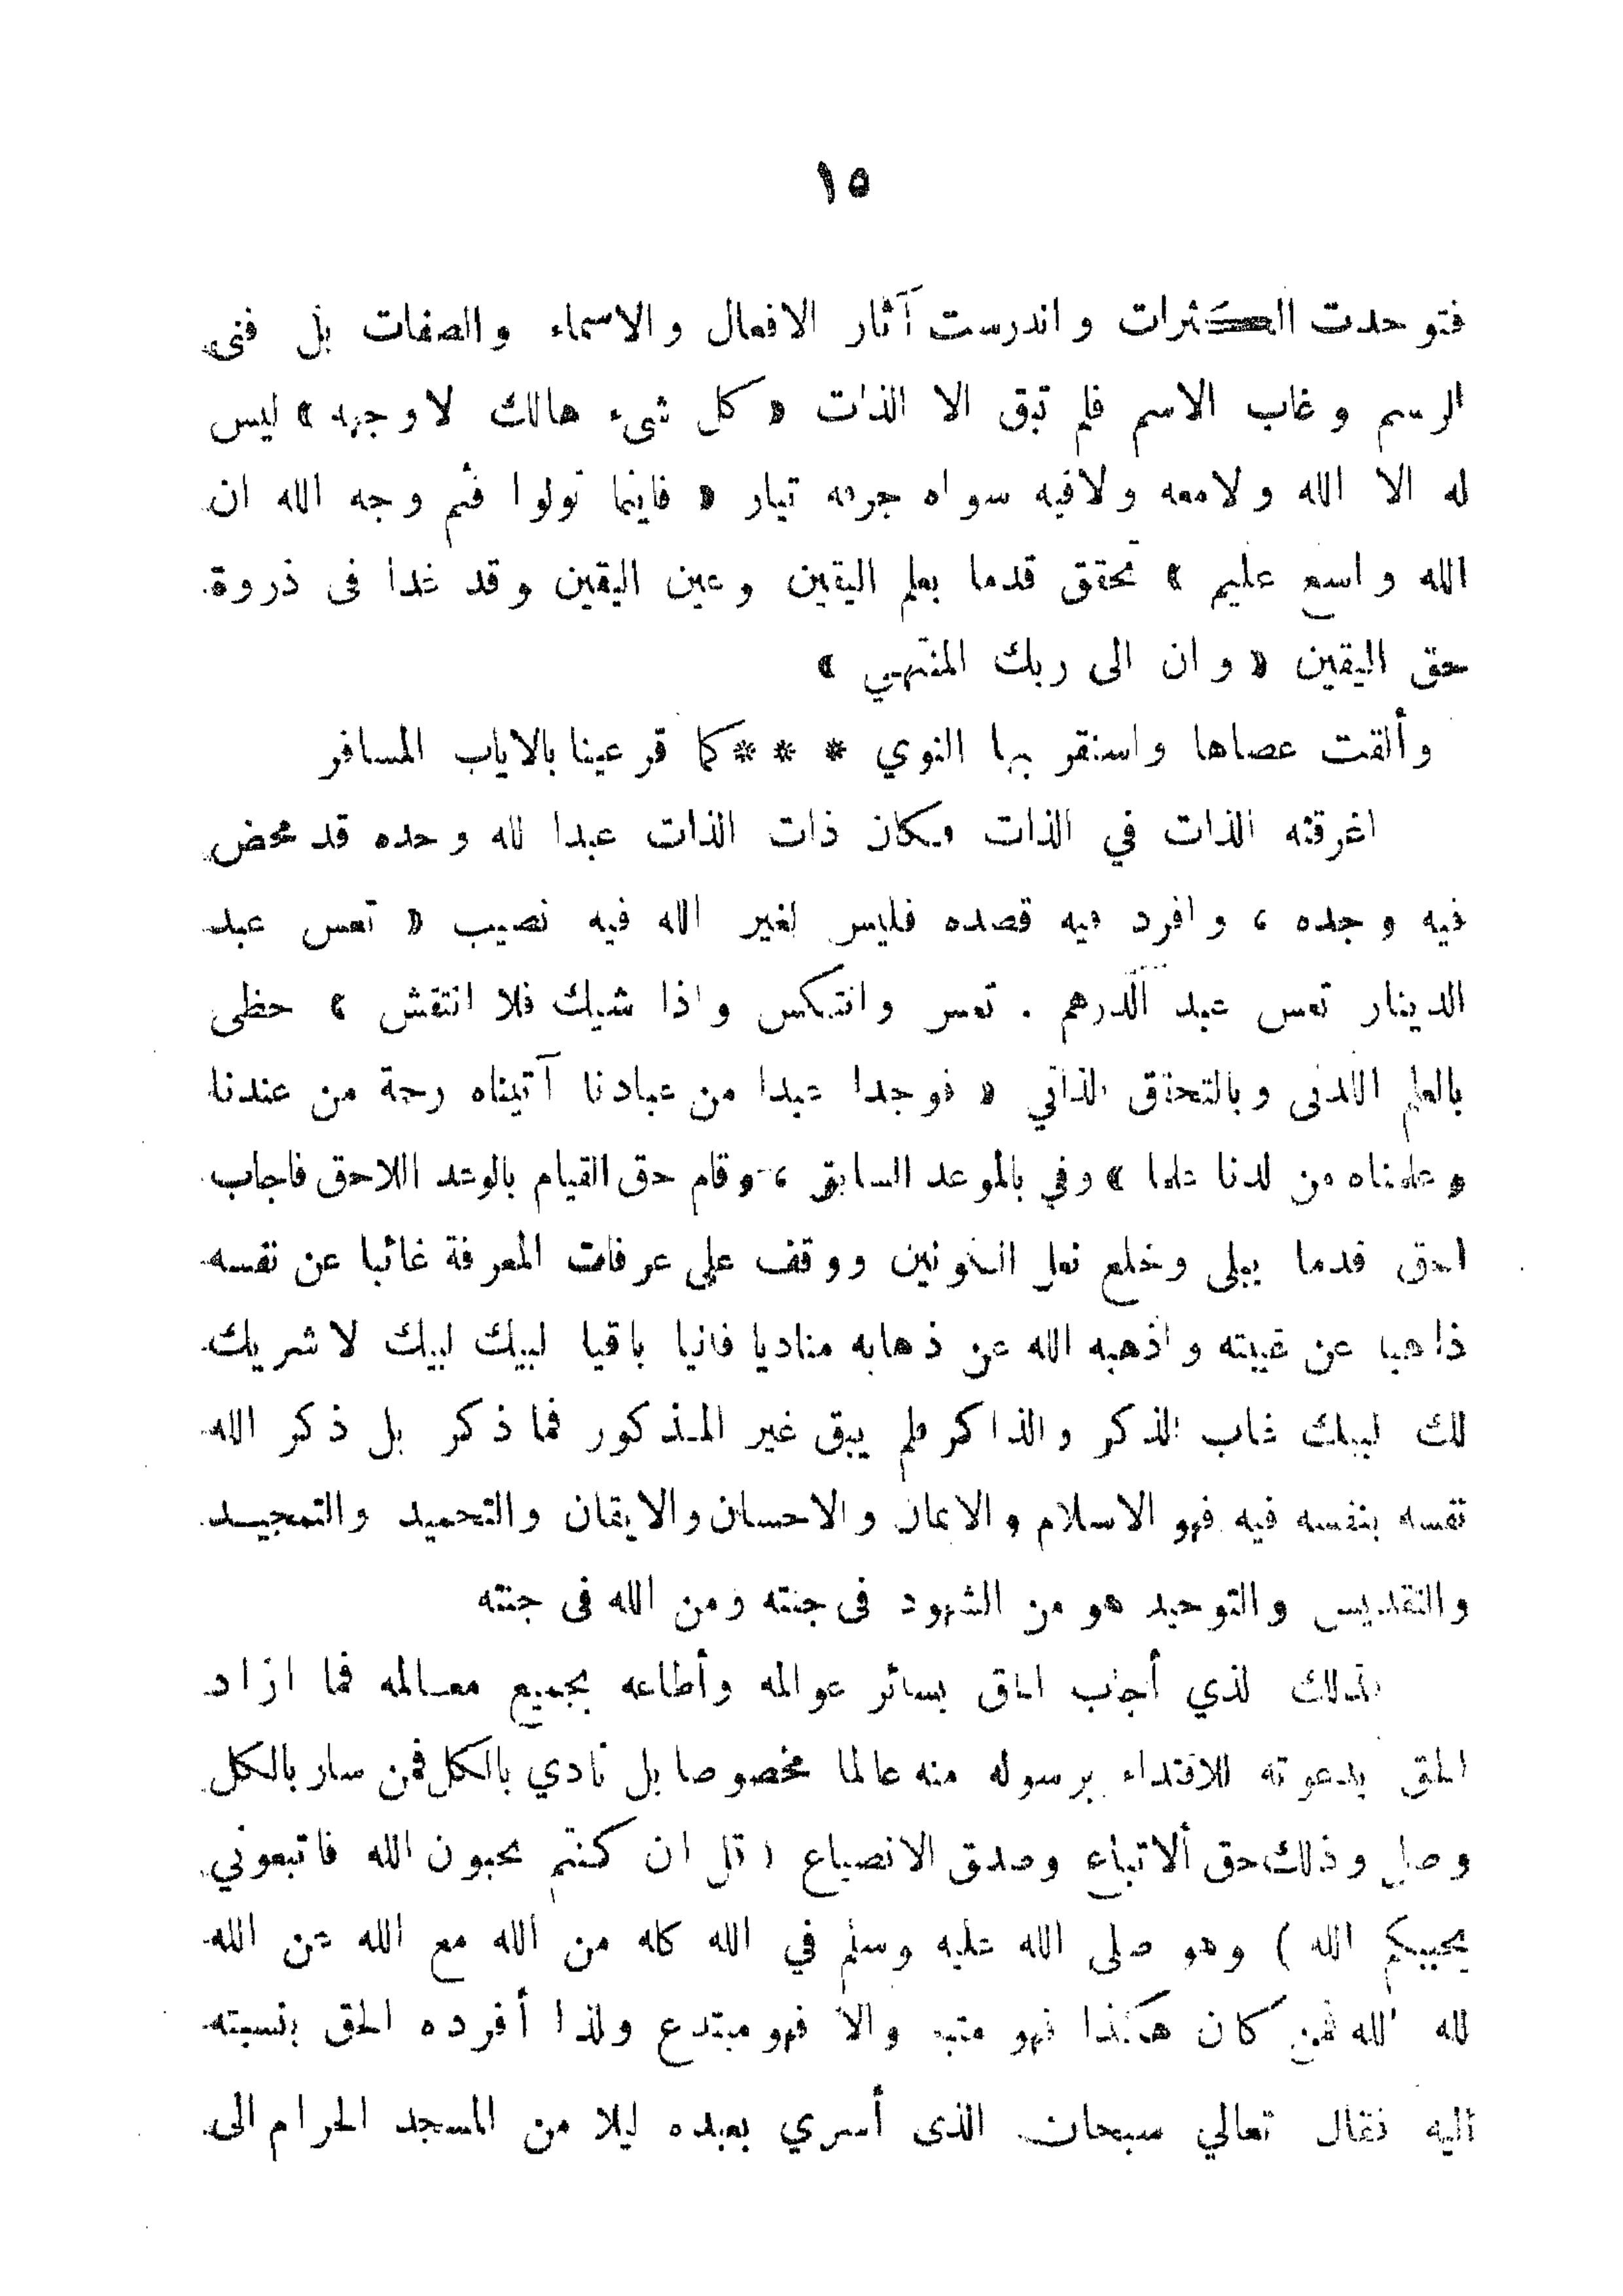 ١٥
فتوحدت الكثرات واندرست آثار الافعال والاسماء والصفات بل فنى
الرسم وغاب الاسم فلم تبق الا الذات « كل شىء هالك لا وجهه » ليس
له الا الله ولا معه ولا فيه سواه جرفه تيار « فاينما تولوا فثم وجه الله ان
الله واسع عليم » تحقق قدما بعلم اليقين وعين اليقين وقد غدا فى ذروة
حق اليقين « وان الى ربك المنتهي »
وألقت عصاها واستقر بها النوي * * * كما قر عينا بالاياب المسافر
اغرقته الذات في الذات فكان ذات الذات عبدا لله وحده قد محض
فيه وجده ، وافرد فيه قصده فليس لغير الله فيه نصيب « تعس عبد
الدينار تعس عبد الدرهم . تعس وانتكس واذا شيك فلا انتقش » حظى
بالعلم اللدنى وبالتحقق الذاتي « فوجدا عبدا من عبادنا آتيناه رحمة من عندنا
وعلمناه من لدنا علما » وفي بالموعد السابق ، وقام حق القيام بالوعد اللاحق فاجاب
الحق قدما ببلى وخلع نعل الكونين ووقف على عرفات المعرفة غائبا عن نفسه
ذاهبا عن غيبته واذهبه الله عن ذهابه مناديا فانيا باقيا لبيك لبيك لا شريك
لك لبيك غاب الذكر والذاكر فلم يبق غير المذكور فما ذكر بل ذكر الله
نفسه بنفسه فيه فهو الاسلام والايمان والاحسان والايقان والتحميد والتمجيد
والتقديس والتوحيد هو من الشهود فى جنته ومن الله فى جنته
لذلك لذي أجاب الحق بسائر عوالمه وأطاعه بجميع معالمه فما اراد
الحق بدعوته للاقتداء برسوله منه عالما مخصوصا بل نادي بالكل فمن سار بالكل
وصل وذلك حق ألاتباع وصدق الانصياع ( قل ان كنتم تحبون الله فاتبعوني
يحببكم الله ) وهو صلى الله عليه وسلم في الله كله من الله مع الله عن الله
لله الله فمن كان هكذا فهو متبع والا فهو مبتدع ولذا أفرده الحق بنسبته
اليه فقال تعالي سبحان الذى أسري بعبده ليلا من المسجد الحرام الى